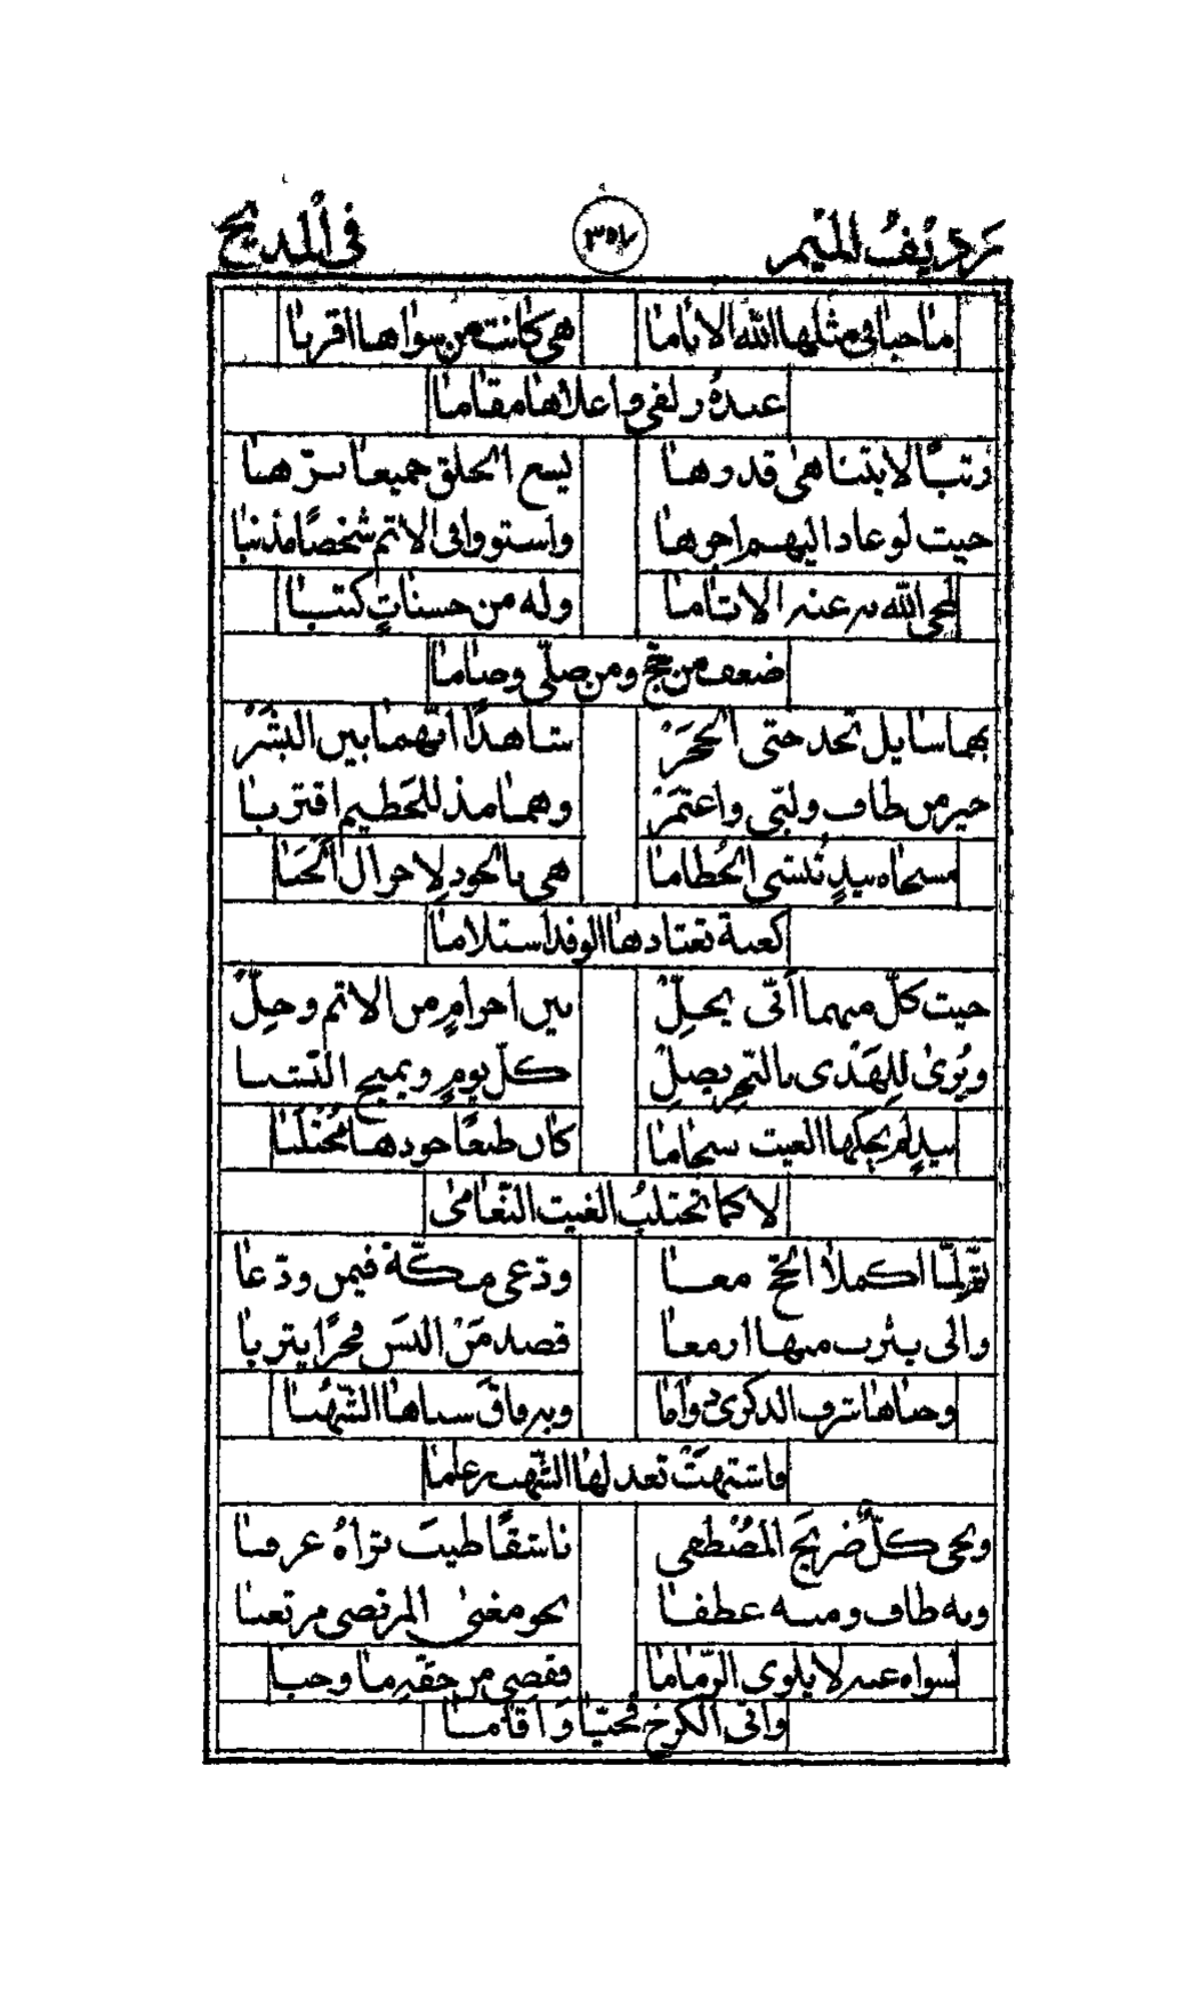 رديف الميم ٣٥٧ في المديح
ما حبا في مثلها الله الاناما هي كانت من سواها اقربا
عنده زلفى واعلاها مقاما
رتبًا لا يتناهى قدرها يسع الخلق جميعا برّها
حيث لو عاد اليهم اجرها واستووا في الاثم شخصًا مذنبا
لمحى الله به عنه الاثاما وله من حسناتٍ كتبا
ضعف من حجّ ومن صلّى وصاما
بهما سايل تجد حتى الحجر شاهدًا انّهما بين البشر
خير من طاف ولبّى واعتمر وهما مذ للحطيم اقتربا
مسحاه بيدٍ تنشي الحطاما هي بالجود لاحرار الحبا
كعبة تعتادها الوفد استلاما
حيث كلّ منهما أنّى يحلّ بين احرامٍ من الاثم وحلّ
ويُرى للهدى بالنحر يصل كلّ يومٍ ويميح النشبا
بيدٍ لم يحكها الغيث سجاما كان طبعًا جودها مجتلبا
لا كما تجتلبُ الغيث النّعامى
ثمّ لمّا اكملا الحجّ معا ودّعى مكّة فيمن ودّعا
والى يثرب منها ازمعا قصد مَنْ البسَ فخرًا يثربا
وحباها شرف الذكرى دواما وبه فاق سناها الشّهبا
فاشتهت تعد لها الشّهب رغاما
وبحى كلٌّ ضريح المصطفى ناشقًا طيبَ ثراهُ عرفا
وبه طاف ومنه عطفا نحو مغنى المرتضى مرتعبا
لسواه عنه لا يلوى الزّماما فقضى من حقّه ما وجبا
واتى الكرخ فحيّا واقاما